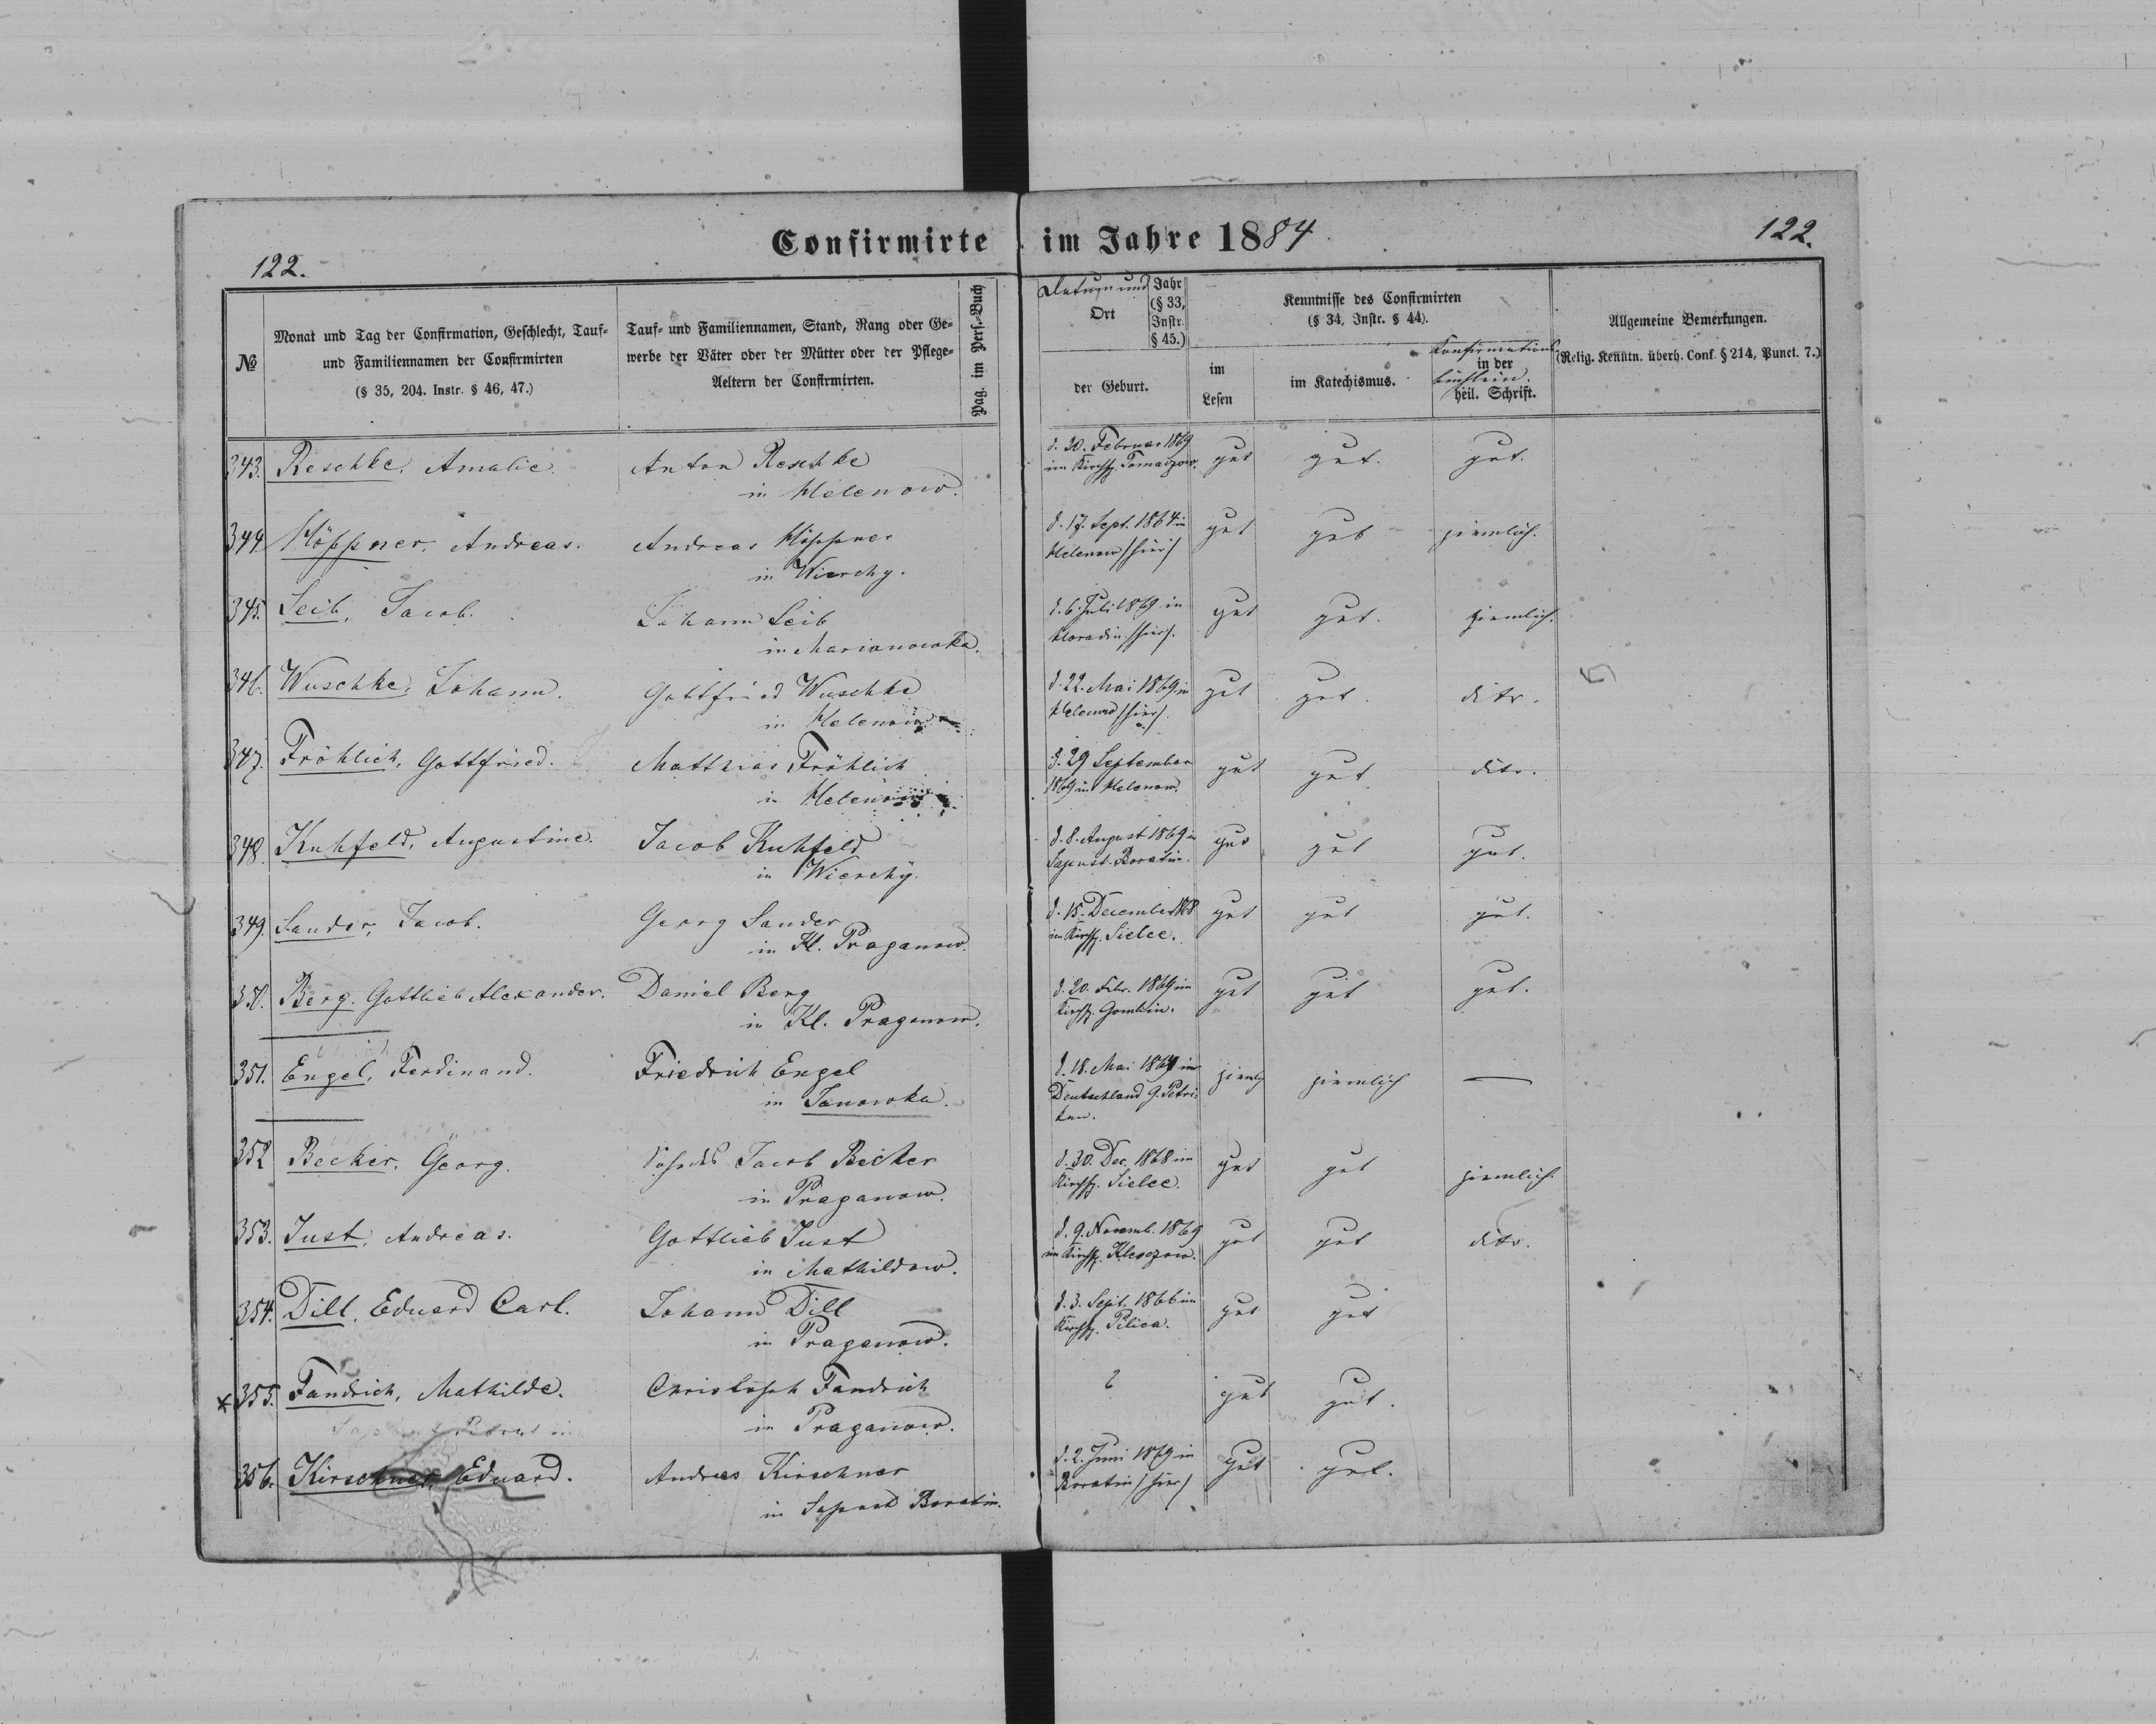 Confirmirte im Jahre 1884
122.
122.
№
Monat und Tag der Confirmation, Geschlecht, Tauf-
und Familiennamen der Confirmirten
(§ 35, 204. Instr. § 46, 47.)
Tauf- und Familiennamen, Stand, Rang oder Ge-
werbe der Väter oder der Mütter oder der Pflege-
Aeltern der Confirmirten.
Pag. im Pers.-Buch
Datum und
Ort
Jahr
(§ 33,
Instr.
§ 45.)
der Geburt.
Kenntnisse des Confirmirten
(§ 34, Instr. § 44).
im
Lesen
im Katechismus.
Konfirmations
in der
büchlein.
heil. Schrift.
Allgemeine Bemerkungen.
(Relig. Kenntn. überh. Conf. § 214, Punct. 7.)
343. Reschke, Amalie. Anton Reschke d. 20. Februar 1869 gut gut. gut.
in Helenow. im Kirchsp. Tomaszow.
344 Höppner, Andreas. Andreas Höppner d. 17. Sept. 1864 in gut gut ziemlich.
in Wierchy. Helenow /hier/
345. Leib, Jacob. Johann Leib d. 6. Juli 1869 in gut gut. ziemlich.
in Marianowka. /hier/.
346. Wuschke, Johann. Gottfried Wuschke d. 22. Mai 1869 in gut gut. dito.
in Helenow Helenow /hier/.
347. Fröhlich, Gottfried. Matthias Fröhlich d. 29 September gut gut dito.
in Helenow 1869 in Helenow.
348. Kuhfeld, Augustine. Jacob Kuhfeld d. 8. August 1869 in gut gut gut.
in Wierchy. Sapust-Boratin.
349. Sander, Jacob. Georg Sander d. 15. December 1868 gut gut gut.
in Kl. Praganow. im Kirchsp. Sielce.
350. Berg. Gottlieb Alexander. Daniel Berg d. 20. Febr. 1869 im gut gut gut.
in Kl. Praganow. Kirchsp. Gombin.
351. Engel, Ferdinand. Friedrich Engel d. 18. Mai 1869 in ziemlich ziemlich —
in Janowka. Deutschland G. Petri-
kau.
352 Becker, Georg. Jacob Becker d. 30. Dec. 1868 im gut gut ziemlich.
in Praganow. Kirchsp. Sielce.
353. Just, Andreas. Gottlieb Just d. 9. Novemb. 1869 gut gut dito.
in Mathildow. im Kirchsp. Kleszczow.
354. Dill, Eduard Carl. Johann Dill d. 3. Sept. 1866 im gut gut
in Praganow. Kirchsp. Pilica.
× 355. Fandrich, Mathilde. Christoph Fandrich gut gut.
in Praganow.
356. Kirschner, Eduard. Andreas Kirschner d. 2. Juni 1869 in gut gut.
in Sapust Boratin. Boratin /hier/